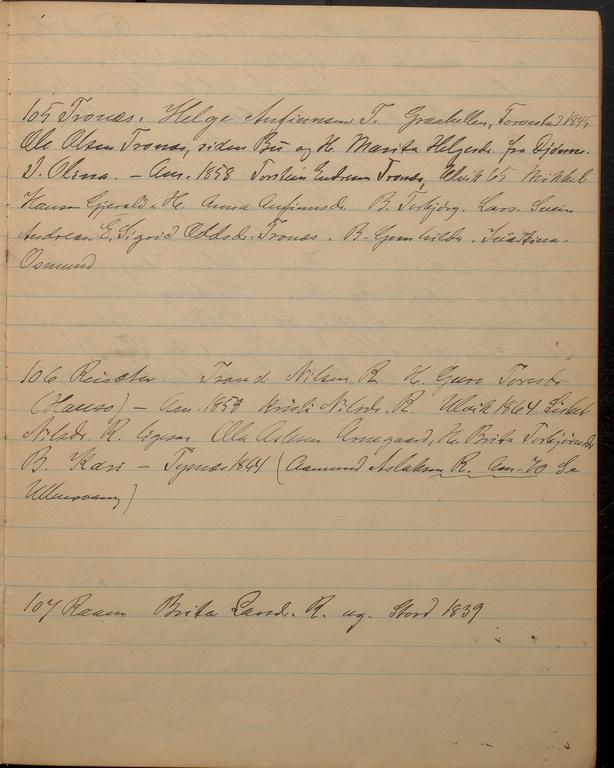 105 Tronæs. Helge Anfinnsen T. Graahellen, Torvestad 1845
Ole Olsen Tronæs, siden Bu og H. Marita Helgesdr. fra Djønne.
D. Olena. – Am. 1858 Torstein Endresen Tronæs, Ulvik 65 Mikkel
Hansen Gjerald & H. Anna Anfinnsdr. B. Torbjørg. Lars. Svein
Andreas. E. Sigrid Oddsdr. Tronæs. B. Gunhilda. Kristina.
Osmund
106 Reisæter. Trond Nilsen R. H. Guro Toresdr.
(Hauso) – Am. 1858 Kristi Nilsdr. R. Ulvik 1864 Sisbet
Nilsdr. R. Ola Aslesen Arnegaard, H. Brita Torbjørnsdr.
B. Kari – Tysnæs 1844 (Aamund Aslaksen R. Am. 70 Se
Ullensvang)
107 Raaen Brita Larsd. R. ug. Stord 1839